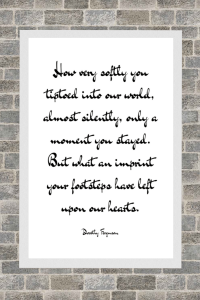 How very softly you
tiptoed into our world,
almost silently, only a
moment you stayed.
But what an imprint
your footsteps have left
upon our hearts.
Dorothy Ferguson